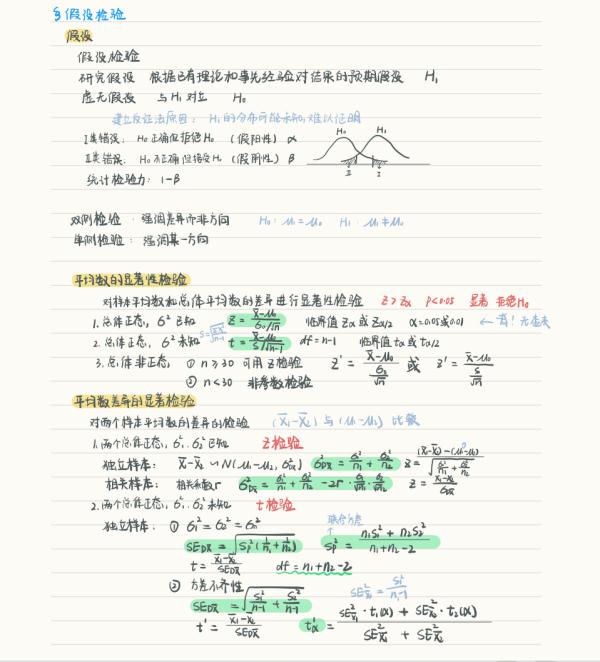 § 假设检验
假设
假设检验
研究假设 根据已有理论和事先经验对结果的预期假设 H₁
虚无假设 与H₁对立 H₀
建立反证法原因: H₁的分布可能未知,难以证明
I类错误: H₀正确但拒绝H₀ (假阳性) α
II类错误: H₀不正确但接受H₁ (假阴性) β
H₀ H₁
II I
统计检验力: 1-β
双侧检验: 强调差异而非方向 H₀: μ₁=μ₀ H₁: μ₁≠μ₀
单侧检验: 强调某一方向
平均数的显著性检验
对样本平均数和总体平均数的差异进行显著性检验 Z>Zα P<0.05 显著 拒绝H₀
1. 总体正态, σ²已知 Z = (X̄-μ₀)/(σ₀/√n) 临界值Zα或Zα/2 α=0.05或0.01
2. 总体正态, σ²未知 t = (X̄-μ₀)/(S/√(n-1)) df=n-1 临界值tα或tα/2
3. 总体非正态, ① n≥30 可用Z检验 Z' = (X̄-μ₀)/(σ₀/√n) 或 Z' = (X̄-μ₀)/(S/√n)
② n<30 非参数检验
平均数差异的显著检验
对两个样本平均数的差异的检验 (X̄₁-X̄₂)与(μ₁-μ₂)比较
1. 两个总体正态, σ₁², σ₂²已知 Z检验
独立样本: X̄₁-X̄₂ ~ N(μ₁-μ₂, σ²DX̄) σ²DX̄ = σ₁²/n₁ + σ₂²/n₂ Z = ((X̄₁-X̄₂)-(μ₁-μ₂))/√(σ₁²/n₁+σ₂²/n₂)
相关样本: 相关系数r σ²DX̄ = σ₁²/n₁ + σ₂²/n₂ - 2r·σ₁/√n₁·σ₂/√n₂ Z = (X̄₁-X̄₂)/σDX̄
2. 两个总体正态, σ₁², σ₂²未知 t检验
联合方差
独立样本: ① σ₁²=σ₂²=σ₀²
SEDX̄ = √(Sp²(1/n₁+1/n₂)) Sp² = (n₁S₁²+n₂S₂²)/(n₁+n₂-2)
t = (X̄₁-X̄₂)/SEDX̄ df=n₁+n₂-2
② 方差不齐性 SE²X̄₁ = S₁²/(n₁-1)
SEDX̄ = √(S₁²/(n-1) + S₂²/(n-1))
t' = (X̄₁-X̄₂)/SEDX̄ t'α = (SE²X̄₁·t₁(α) + SE²X̄₂·t₂(α))/(SE²X̄₁ + SE²X̄₂)